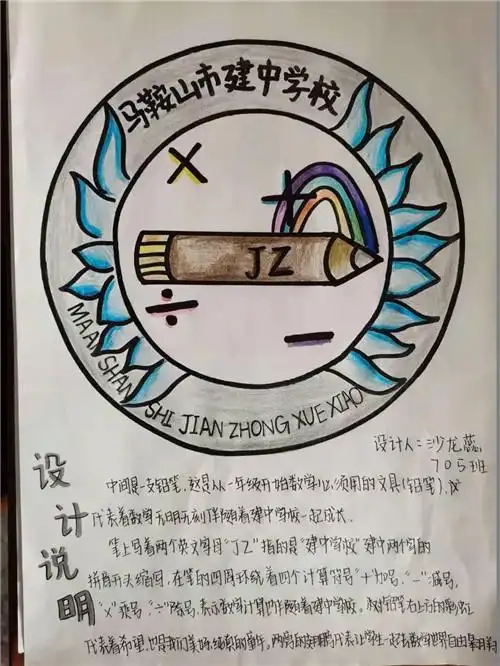 马鞍山市建中学校
JZ
MA AN SHAN SHI JIAN ZHONG XUE XIAO
设计人:沙龙蕊
705班
设计说明
中间是一支铅笔,这是从一年级开始数学必须用的文具(铅笔),
代表着数学无时无刻伴随着建中学校一起成长。
笔上写着两个英文字母"JZ"指的是"建中学校"建中两个字的
拼音开头缩写,在笔的四周环绕着四个计算符号"+"加号,"-"减号,
"×"乘号,"÷"除号,表示数学计算也伴随着建中学校。
代表着希望,也是我们美好